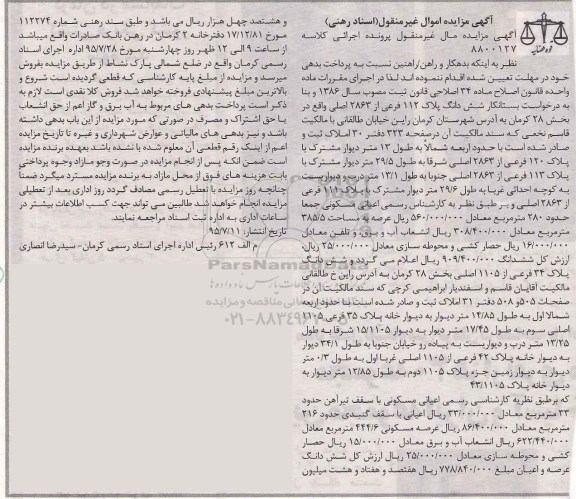 آگهی مزایده اموال غیرمنقول(اسناد رهنی)
آگهی مزایده مال غیرمنقول پرونده اجرائی کلاسه
۸۸۰۰۱۲۷
نظر به اینکه بدهکار و راهن/راهنین نسبت به پرداخت بدهی
خود در مهلت تعیین شده اقدام ننموده اند لذا در اجرای مقررات ماده
واحده قانون اصلاح ماده ۳۴ اصلاحی قانون ثبت مصوب سال ۱۳۸۶ و بنا
به درخواست بستانکار شش دانگ پلاک ۱۱۲ فرعی از ۲۸۶۳ اصلی واقع در
بخش ۲۸ کرمان به آدرس شهرستان کرمان راین خیابان طالقانی با مالکیت
قاسم نخعی که سند مالکیت آن در صفحه ۳۲۳ دفتر ۳۰ املاک ثبت و
صادر شده است با حدود اربعه شمالاً به طول ۱۳ متر دیوار مشترک با
پلاک ۱۲۰ فرعی از ۲۸۶۳ اصلی شرقا به طول ۲۹/۵ متر دیوار مشترک با
پلاک ۱۱۳ فرعی از ۲۸۶۳ اصلی جنوبا به طول ۱۳/۱ متر درب و دیواریست
به کوچه احداثی غربا به طول ۲۹/۶ متر دیوار مشترک با پلاک ۱۱۱ فرعی
از ۲۸۶۳ اصلی و بر طبق نظر به کارشناس رسمی اعیانی مسکونی جمعا
حدود ۲۸۰ مترمربع معادل ۵۶۰/۰۰۰/۰۰۰ ریال عرصه به مساحت ۳۸۵/۵
مترمربع معادل ۳۰۸/۴۰۰/۰۰۰ ریال انشعاب آب و برق و تلفن معادل
۱۶/۰۰۰/۰۰۰ ریال حصار کشی و محوطه سازی معادل ۲۵/۰۰۰/۰۰۰ ریال،
ارزش کل ششدانگ ۹۰۹/۴۰۰/۰۰۰ ریال اعلام می گردد و شش دانگ
پلاک ۳۴ فرعی از ۱۱۰۵ اصلی بخش ۲۸ کرمان به آدرس راین خ طالقانی
مالکیت آقایان قاسم و اسفندیار ابراهیمی کرچی که سند مالکیت آن در
صفحات ۵۰۵ و ۵۰۸ دفتر ۳۱ املاک ثبت و صادر شده است با حدود اربعه
شمالا اول به طول ۱۴/۸۵ متر دیوار به دیوار خانه پلاک ۳۵ فرعی ۱۱۰۵
اصلی سوم به طول ۱۷/۴۵ متر دیوار به دیوار ۱۵/۱۱۰۵ شرقا به طول
۱۳/۲۵ متر درب و دیواریست به پیاده رو خیابان جنوبا به طول ۳۴/۱ دیوار
به دیوار خانه پلاک ۴۲ فرعی از ۱۱۰۵ اصلی غربا اول به طول ۰/۳ متر
دیوار به دیوار زمین جزء پلاک ۱۱۰۵ دوم به طول ۱۲/۸۵ متر دیوار به
دیوار خانه پلاک ۴۳/۱۱۰۵
که برطبق نظریه کارشناسی رسمی اعیانی مسکونی با سقف تیرآهن حدود
۳۳ مترمربع معادل ۳۳/۰۰۰/۰۰۰ ریال اعیانی با سقف گنبدی حدود ۲۱۶
مترمربع معادل ۸۶/۴۰۰/۰۰۰ ریال عرصه مسکونی ۴۴۴/۶ مترمربع معادل
۶۲۲/۴۴۰/۰۰۰ ریال انشعاب آب و برق معادل ۱۵/۰۰۰/۰۰۰ ریال حصار
کشی و محوطه سازی معادل ۲۵/۰۰۰/۰۰۰ ریال ارزش کل شش دانگ
عرصه و اعیان مبلغ ۷۷۸/۸۴۰/۰۰۰ ریال هفتصد و هفتاد و هشت میلیون
و هشتصد چهل هزار ریال می باشد و طبق سند رهنی شماره ۱۱۲۲۷۴
مورخ ۱۷/۱۲/۸۱ دفترخانه ۲ کرمان در رهن بانک صادرات واقع میباشد
از ساعت ۹ الی ۱۲ ظهر روز چهارشنبه مورخ ۹۵/۷/۲۸ اداره اجرای اسناد
رسمی کرمان واقع در ضلع شمالی پارک نشاط از طریق مزایده بفروش
میرسد و مزایده از مبلغ پایه کارشناسی که قطعی گردیده است شروع و
بالاترین مبلغ پیشنهادی فروخته خواهد شد فروش کلا نقدی است لازم به
ذکر است پرداخت بدهی های مربوط به آب برق و گاز اعم از حق انشعاب
یا حق اشتراک و مصرف در صورتی که مورد مزایده از این باب بدهی داشته
باشد و نیز بدهی های مالیاتی و عوارض شهرداری و غیره تا تاریخ مزایده
اعم از اینکه رقم قطعی آن معلوم شده یا نشده باشد بعهده برنده مزایده
است ضمن آنکه پس از انجام مزایده در صورت وجو مازاد وجوه پرداختی
بابت هزینه های فوق از محل مازاد به برنده مزایده مسترد میگردد ضمناً
چنانچه روز مزایده با تعطیل رسمی مصادف گردد روز اداری بعد از تعطیلی
مزایده انجام خواهد شد طالبین می تواند جهت کسب اطلاعات بیشتر در
ساعات اداری به اداره ثبت اسناد مراجعه نمایند.
تاریخ انتشار: ۹۵/۷/۱۱
م الف ۶۱۲ رئیس اداره اجرای اسناد رسمی کرمان- سیدرضا انصاری
ParsNamadData
۰۲۱-۸۸۳۴۹۶۷۰-۵